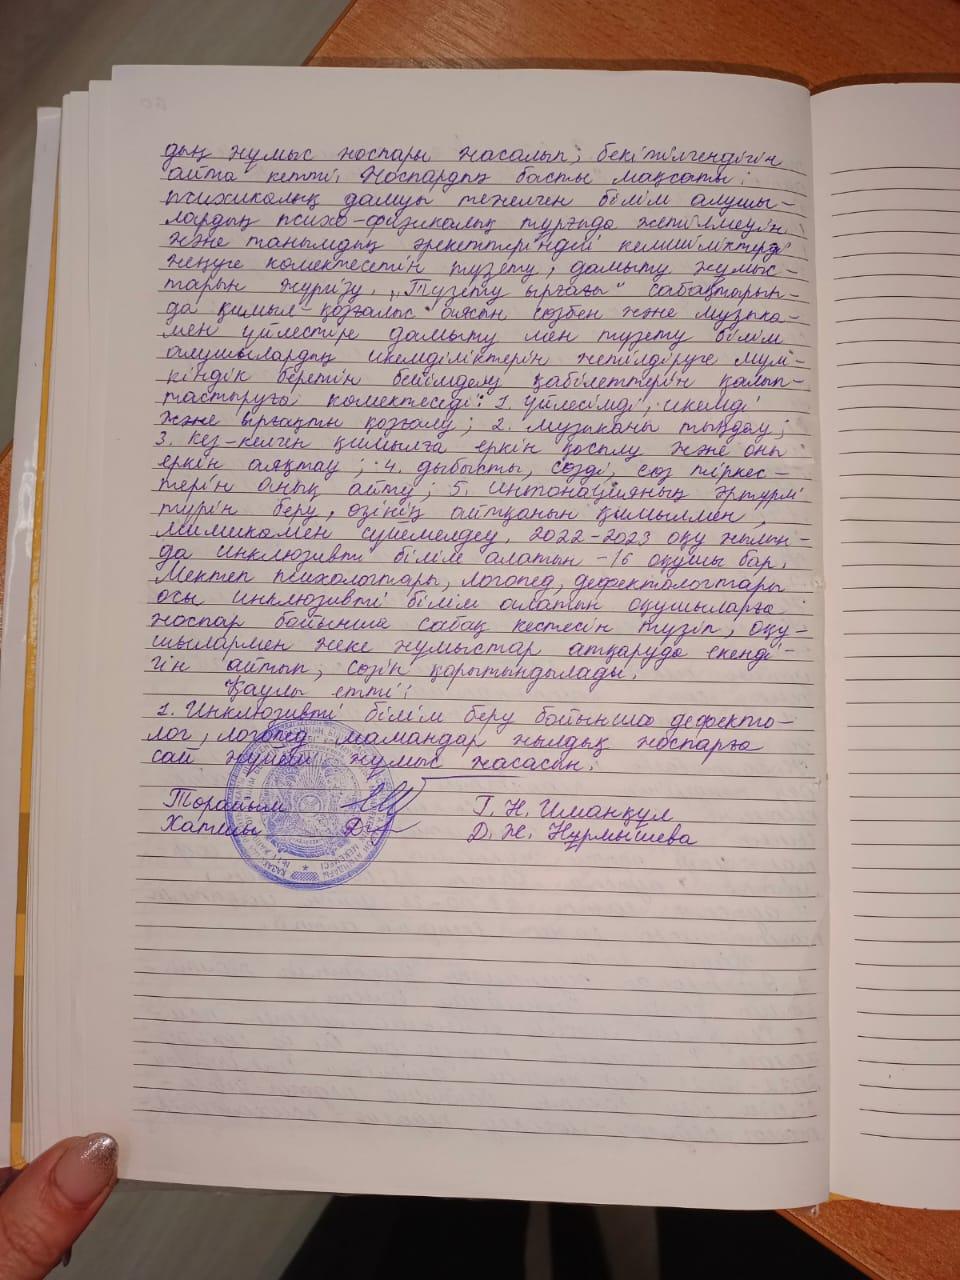 дың жұмыс жоспары жасалып, бекітілгендігін
айта кетті. Жоспардың басты мақсаты:
психикалық дамуы тежелген білім алушы-
лардың психо-физикалық тұрғыда жетілмеуін
және танымдық әрекеттеріндегі кемшіліктерді
жеңуге көмектесетін түзету, дамыту жұмыс-
тарын жүргізу. „Түзету ырғағы" сабақтарын-
да қимыл-қозғалыс аясын сөзбен және музыка-
мен үйлестіре дамыту мен түзету білім
алушылардың икемділіктерін жетілдіруге мүм-
кіндік беретін бейімделу қабілеттерін қалып-
тастыруға көмектеседі: 1. Үйлесімді, икемді
және ырғақты қозғалу; 2. музыканы тыңдау;
3. Кез-келген қимылға еркін қосылу және оны
еркін аяқтау; 4. дыбысты, сөзді, сөз тіркес-
терін анық айту; 5. интонацияның әртүрлі
түрін беру, өзінің айтқанын қимылмен,
мимикамен сүйемелдеу. 2022-2023 оқу жылын-
да инклюзивті білім алатын -16 оқушы бар.
Мектеп психологтары, логопед, дефектологтары
осы инклюзивті білім алатын оқушыларға
жоспар бойынша сабақ кестесін түзіп, оқу-
шылармен жеке жұмыстар атқаруда екенді-
гін айтып, сөзін қорытындылады.
Қаулы етті:
1. Инклюзивті білім беру бойынша дефекто-
лог, логопед мамандар жылдық жоспарға
сай жүйелі жұмыс жасасын.
Төрайым Г. Н. Иманқұл
Хатшы Д. Ж. Нұрмышева